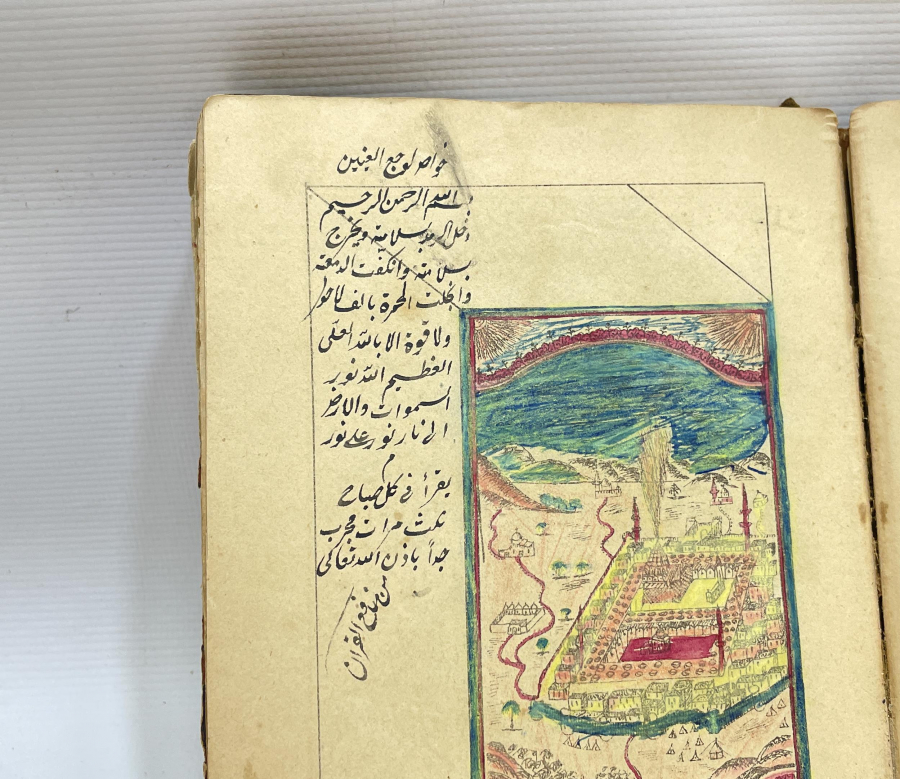 خواص لوجع العينين
بسم الله الرحمن الرحيم
دخل الرمد بسلامة ويخرج
بسلامته وانكفت الدمعة
وانجلت الحمرة بالف لاحول
ولا قوة الا بالله العلى
العظيم الله نور
السموات والارض
الى نار نور على نور
م
يقرأ فى كل صباح
ثلث مرات مجرب
جداً باذن الله تعالى
من منافع القرآن